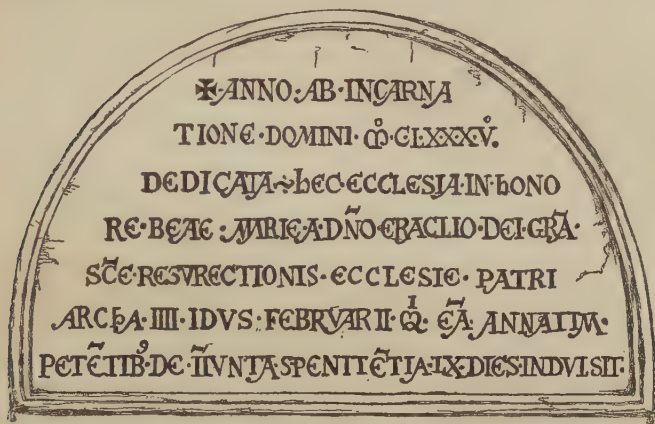 ✠·ANNO·AB·INCARNA
TIONE·DOMINI·M̊·CLXXXV̊.
DEDICATA~hEC·ECCLESIA·IN·hONO
RE·BEATE·MARIE·A·DÑO·ERACLIO·DEI·GRÃ·
SCẼ·RESVRECTIONIS·ECCLESIE·PATRI
ARChA·IIII·IDVS·FEBRVARII·Qͥ·EÃ·ANNATIM·
PETẼTIBꝰ·DE·IĨVNTA·SPENITẼTIA·LX·DIES·INDVLSIT·